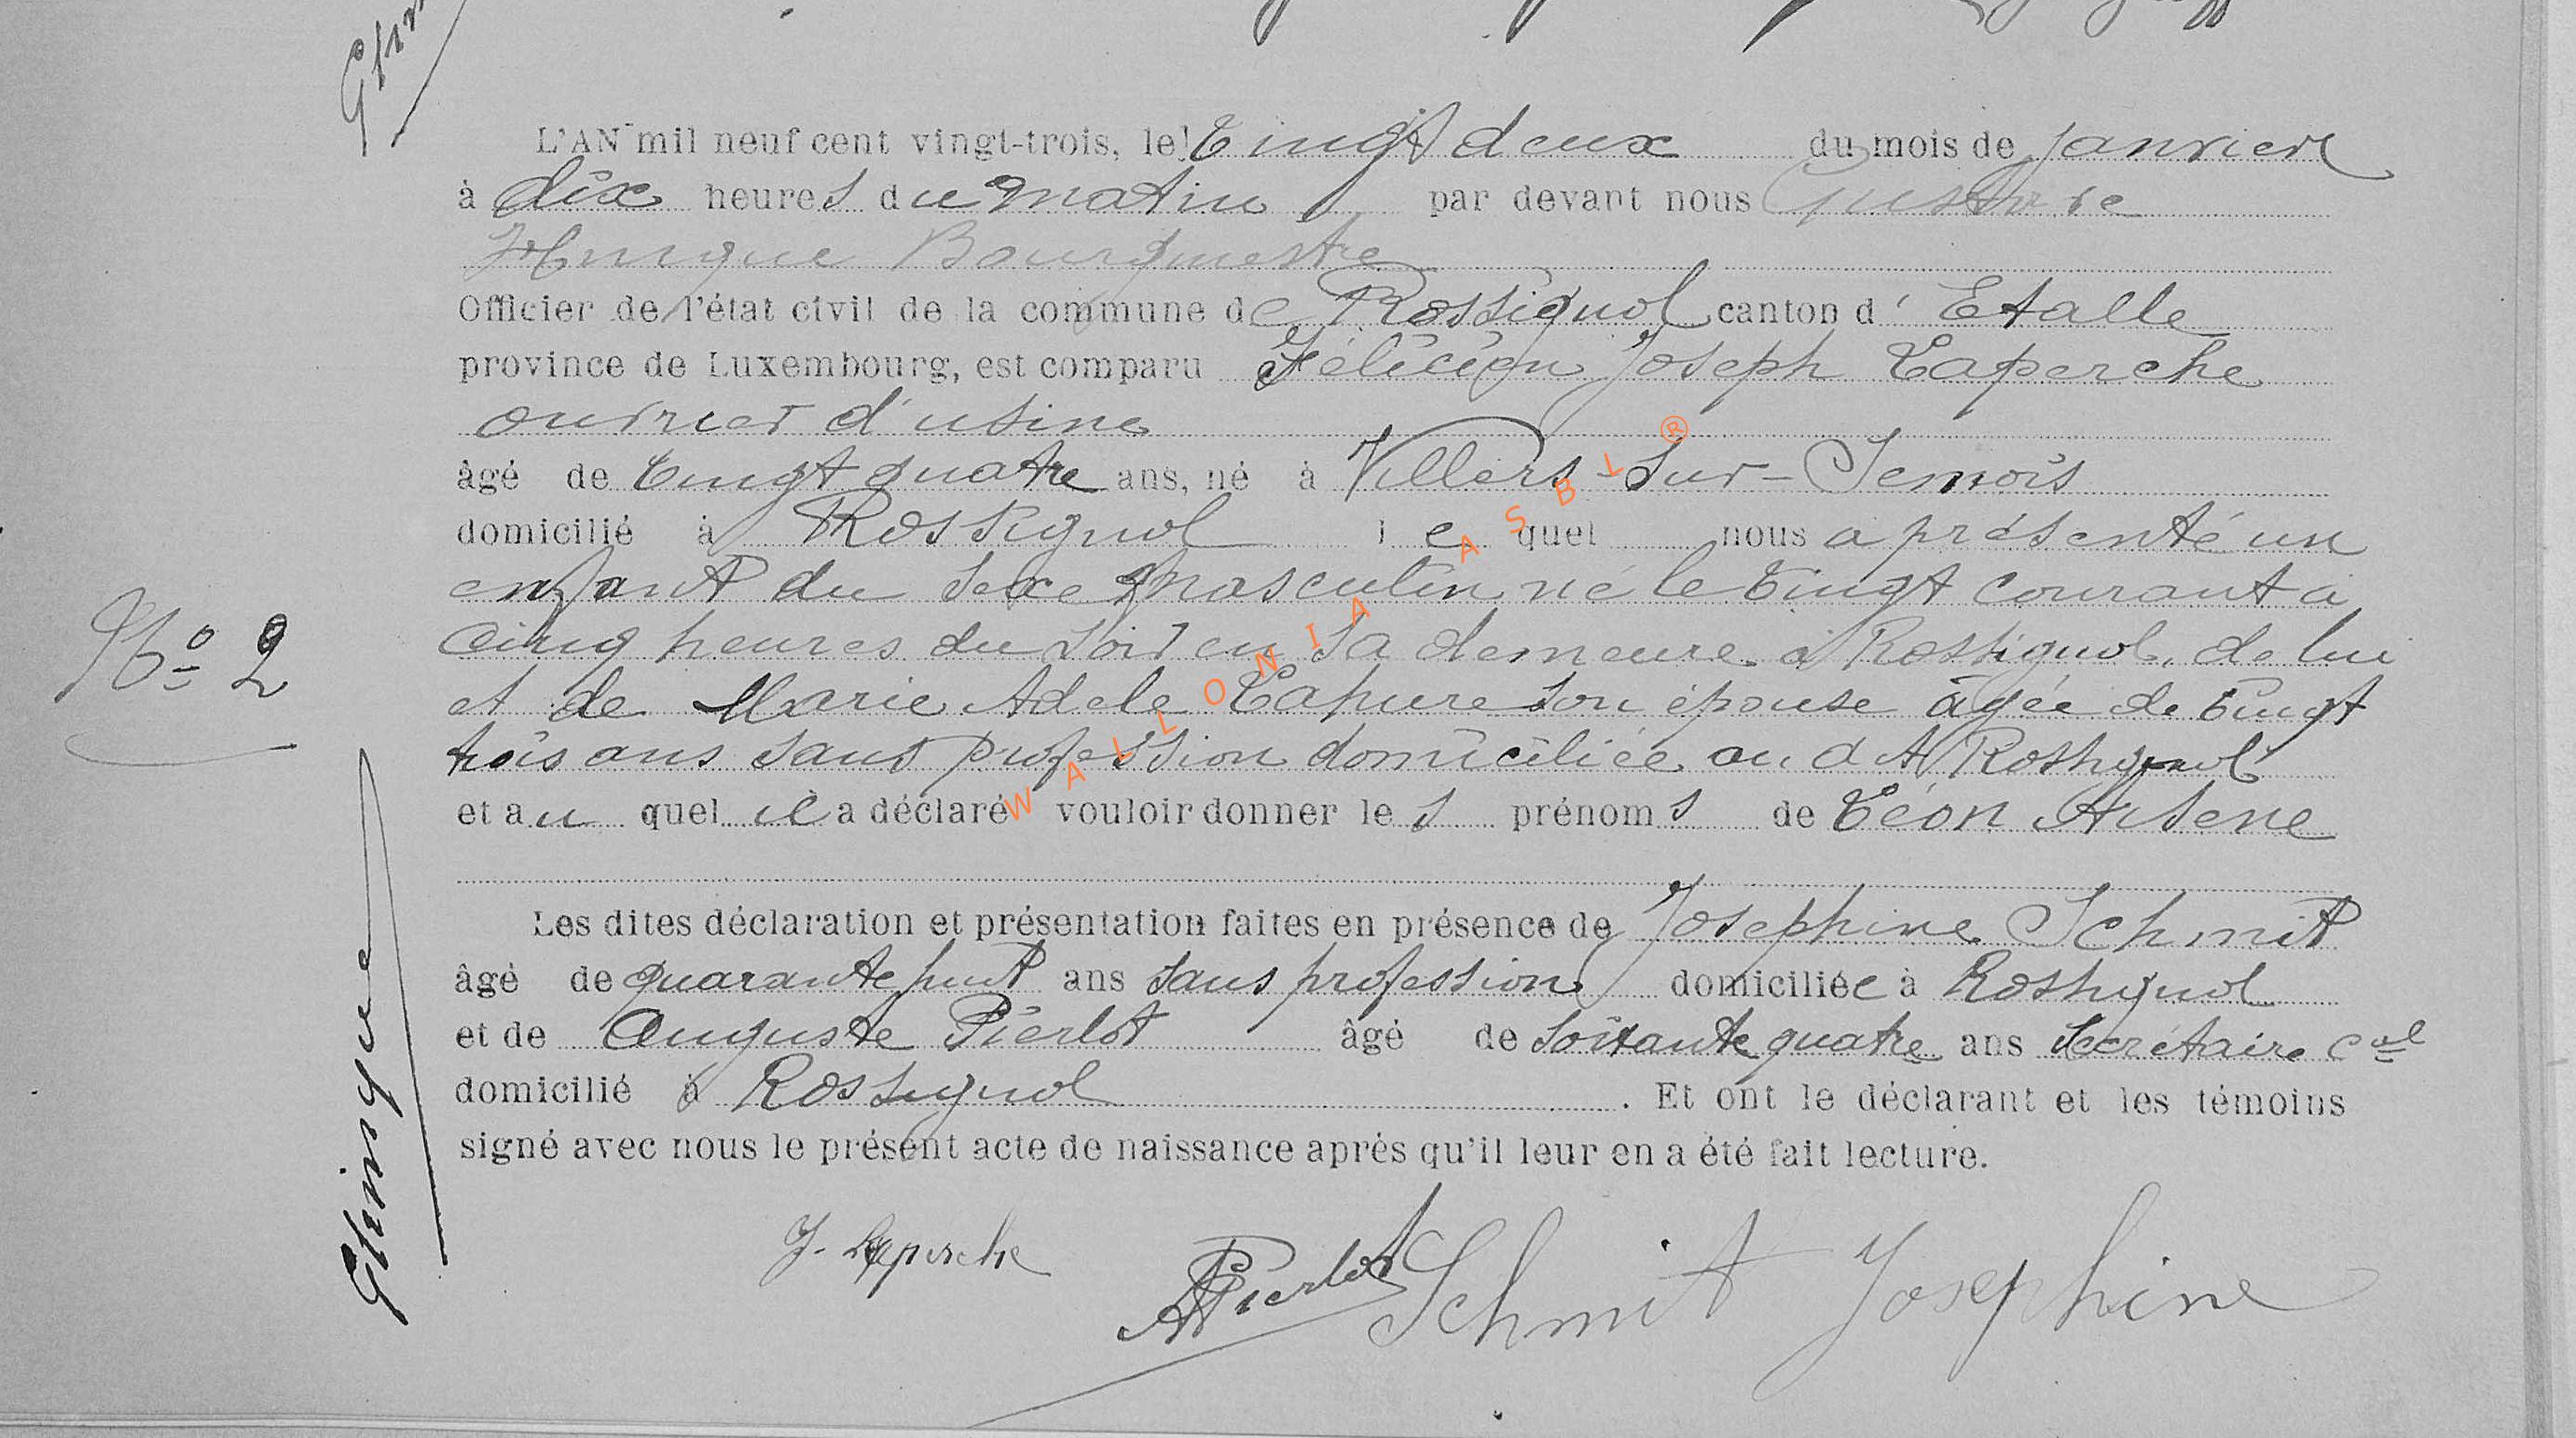 L'AN mil neuf cent vingt-trois, le Vingt deux du mois de Janvier
à dix heures du matin par devant nous Gustave
Hungue Bourgmestre
Officier de l'état civil de la commune de Rossignol canton d'Etalle
province de Luxembourg, est comparu Félicien Joseph Laperche
ouvrier d'usine
âgé de Vingt quatre ans, né à Villers-Sur-Semois
domicilié à Rossignol lequel nous a présenté un
enfant du sexe masculin né le Vingt courant à
cinq heures du soir en sa demeure à Rossignol, de lui
et de Marie Adele Lapure son épouse âgée de Vingt
trois ans sans profession domiciliée au dt Rossignol
et au quel il a déclaré vouloir donner les prénoms de Léon Arsene
Les dites déclaration et présentation faites en présence de Josephine Schmit
âgé de quarante huit ans sans profession domiciliée à Rossignol
et de Auguste Pierlot âgé de soixante quatre ans Secrétaire cal
domicilié à Rossignol. Et ont le déclarant et les témoins
signé avec nous le présent acte de naissance après qu'il leur en a été fait lecture.
No 2
J. Laperche
A Pierlot
Schmit Josephine
WALLONIA ASBL ®